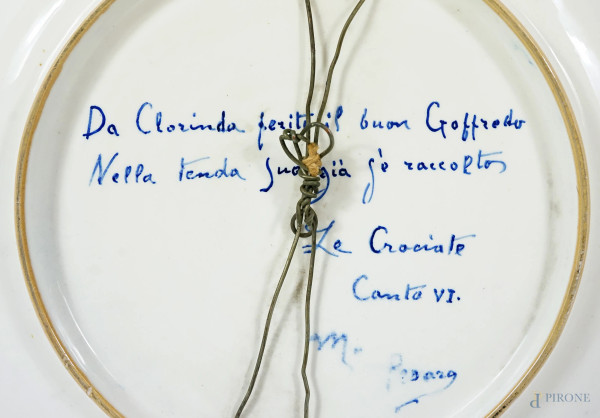 Da Clorinda ferito il buon Goffredo
Nella tenda sua già s'è raccolto
=Le Crociate
Canto VI.
M.
Pesaro
PIRONE